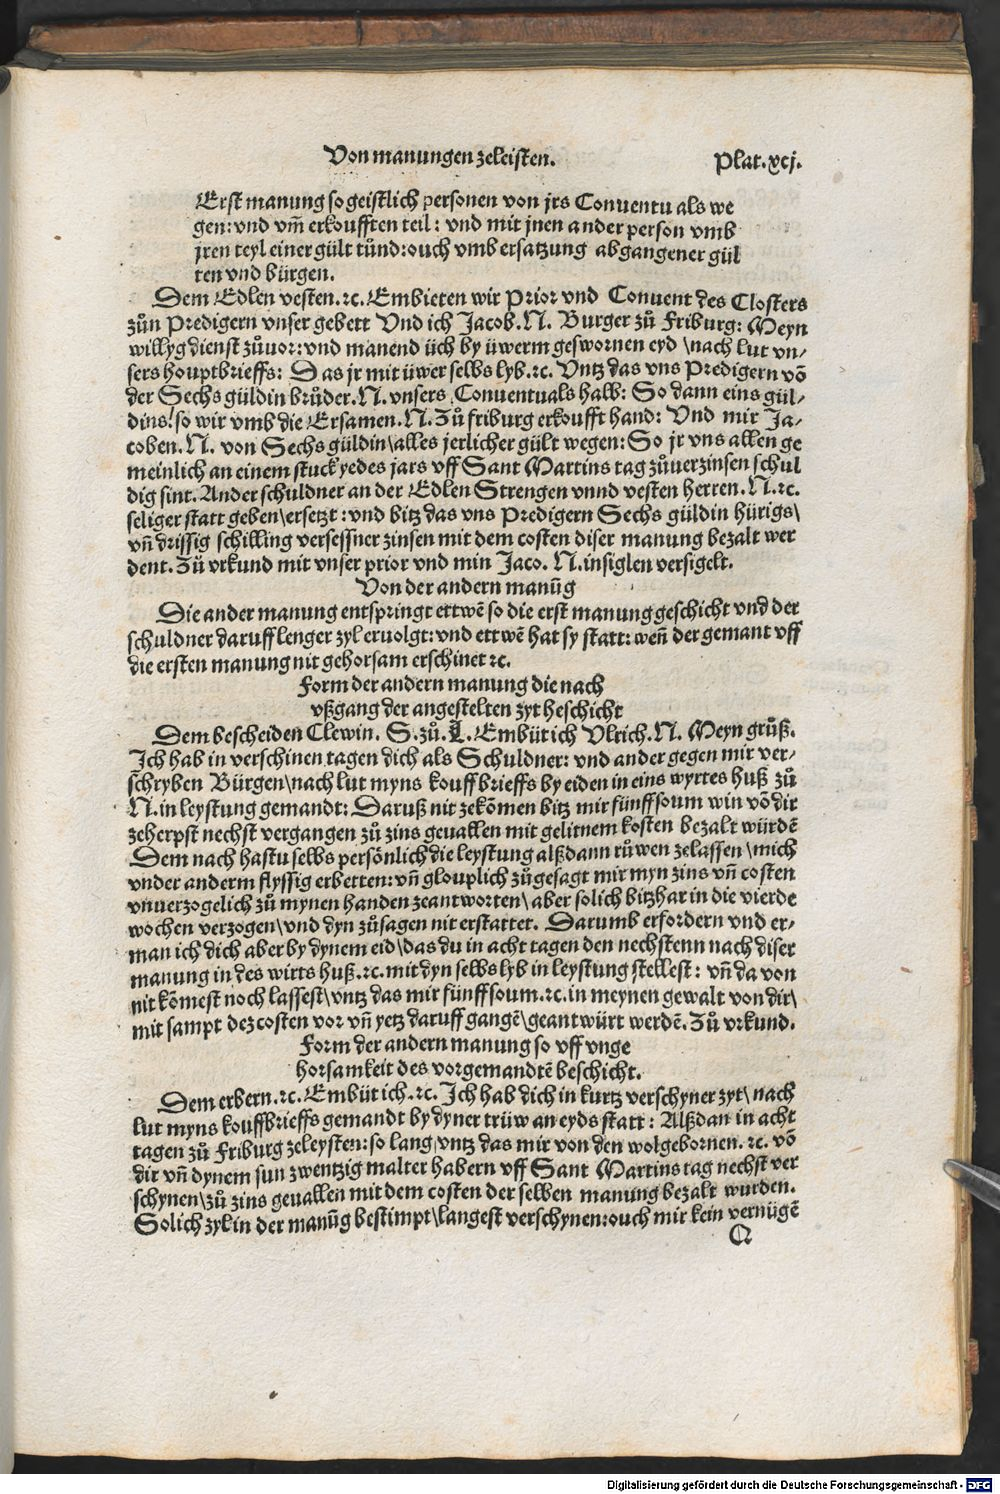 Von manungen zeleisten.
Plat. xcj.
Erst manung so geistlich personen von jrs Conuentuals we
gen: vnd vm̃ erkoufften teil: vnd mit jnen ander person vmb
jren teyl einer gült tůnd: ouch vmb ersatzung abgangener gül
ten vnd bürgen.
Dem Edlen vesten. ꝛc. Embieten wir Prior vnd Conuent des Closters
zůn Predigern vnser gebett Vnd ich Jacob. N. Burger zů Friburg: Meyn
willyg dienst zůuor: vnd manend üch by üwerm geswornen eyd \ nach lut vn⸗
sers houptbrieffs: Das jr mit üwer selbs lyb. ꝛc. Vntz das vns Predigern võ
der Sechs güldin brůder. N. vnsers Conuentuals halb: So dann eins gül⸗
dins / so wir vmb die Ersamen. N. Zů friburg erkoufft hand: Vnd mir Ja⸗
coben. N. von Sechs güldin \ alles jerlicher gült wegen: So jr vns allen ge
meinlich an einem stuck yedes jars vff Sant Martins tag zůuerzinsen schul
dig sint. Ander schuldner an der Edlen Strengen vnnd vesten herren. N. ꝛc.
seliger statt geben \ ersetzt: vnd bitz das vns Predigern Sechs güldin hürigs \
vñ drissig schilling versessner zinsen mit dem costen diser manung bezalt wer
dent. Zů vrkund mit vnser prior vnd min Jaco. N. insiglen versigelt.
Von der andern manūg
Die ander manung entspringt ettwẽ so die erst manung geschicht vnd der
schuldner daruff lenger zyl eruolgt: vnd ettwẽ hat sy statt: weñ der gemant vff
die ersten manung nit gehorsam erschinet ꝛc.
Form der andern manung die nach
vßgang der angestelten zyt beschicht
Dem bescheiden Clewin. S. zů. L. Embüt ich Vlrich. N. Meyn grůß.
Ich hab in verschinen tagen dich als Schuldner: vnd ander gegen mir ver⸗
schryben Bürgen \ nach lut myns kouffbrieffs by eiden in eins wyrtes huß zů
N. in leystung gemandt: Daruß nit zekõmen bitz mir fünff soum win võ dir
zeherpst nechst vergangen zů zins geuallen mit gelitnem kosten bezalt würdẽ
Dem nach hastu selbs persönlich die leystung alßdann růwen zelassen \ mich
vnder anderm flyssig erbetten: vñ glouplich zůgesagt mir myn zins vñ costen
vnuerzogelich zů mynen handen zeantworten \ aber solich bitzhar in die vierde
wochen verzogen \ vnd dyn zůsagen nit erstattet. Darumb erfordern vnd er⸗
man ich dich aber by dynem eid \ das du in acht tagen den nechstenn nach diser
manung in des wirts huß. ꝛc. mit dyn selbs lyb in leystung stellest: vñ da von
nit kõmest noch lassest \ vntz das mir fünff soum. ꝛc. in meynen gewalt von dir \
mit sampt dez costen vor vñ yetz daruff gangẽ \ geantwürt werdẽ. Zů vrkund.
Form der andern manung so vff vnge
horsamkeit des vorgemandtẽ beschicht.
Dem erbern. ꝛc. Embüt ich. ꝛc. Ich hab dich in kurtz verschyner zyt \ nach
lut myns kouffbrieffs gemandt by dyner trüw an eyds statt: Alßdan in acht
tagen zů Friburg zeleysten: so lang vntz das mir von den wolgebornen. ꝛc. võ
dir vñ dynem sun zwentzig malter habern vff Sant Martins tag nechst ver
schynen \ zů zins geuallen mit dem costen der selben manung bezalt wurden.
Solich zyl in der manūg bestimpt \ langest verschynen: ouch mir kein vernügẽ
Q
Digitalisierung gefördert durch die Deutsche Forschungsgemeinschaft - DFG